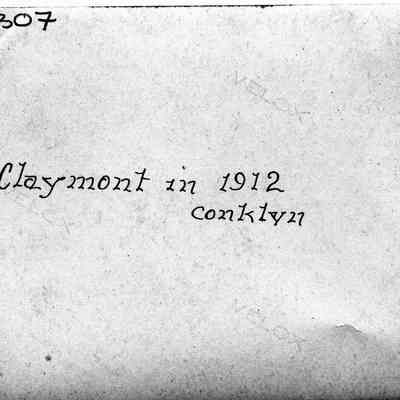 307
VELOX
Claymont in 1912
conklyn
VELOX